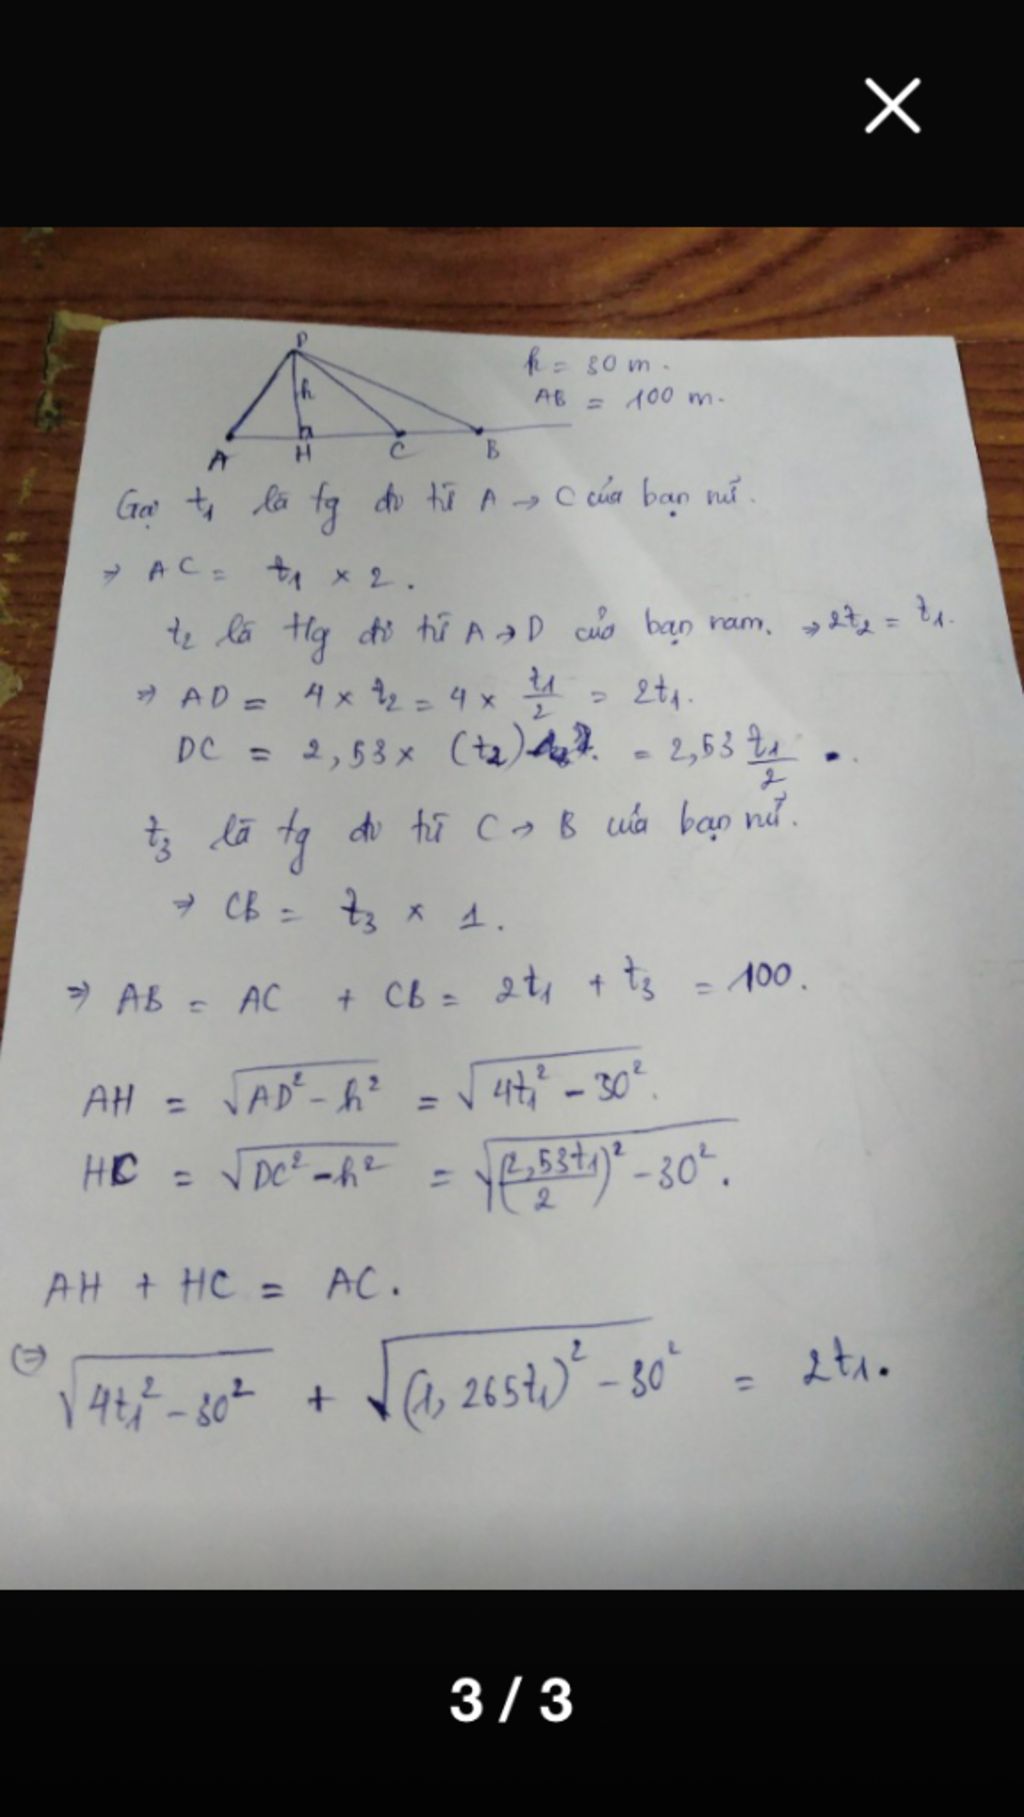 D
h
h = 30 m.
AB = 100 m.
A H C B
Gọi t₁ là tg đi từ A → C của bạn nữ.
⇒ AC = t₁ × 2.
t₂ là tg đi từ A → D của bạn nam. ⇒ 2t₂ = t₁.
⇒ AD = 4 × t₂ = 4 × t₁/2 = 2t₁.
DC = 2,53 × (t₂) = 2,53 t₁/2.
t₃ là tg đi từ C → B của bạn nữ.
⇒ CB = t₃ × 1.
⇒ AB = AC + CB = 2t₁ + t₃ = 100.
AH = √(AD² - h²) = √(4t₁² - 30²).
HC = √(DC² - h²) = √((2,53t₁/2)² - 30²).
AH + HC = AC.
⇔ √(4t₁² - 30²) + √((1,265t₁)² - 30²) = 2t₁.
3 / 3